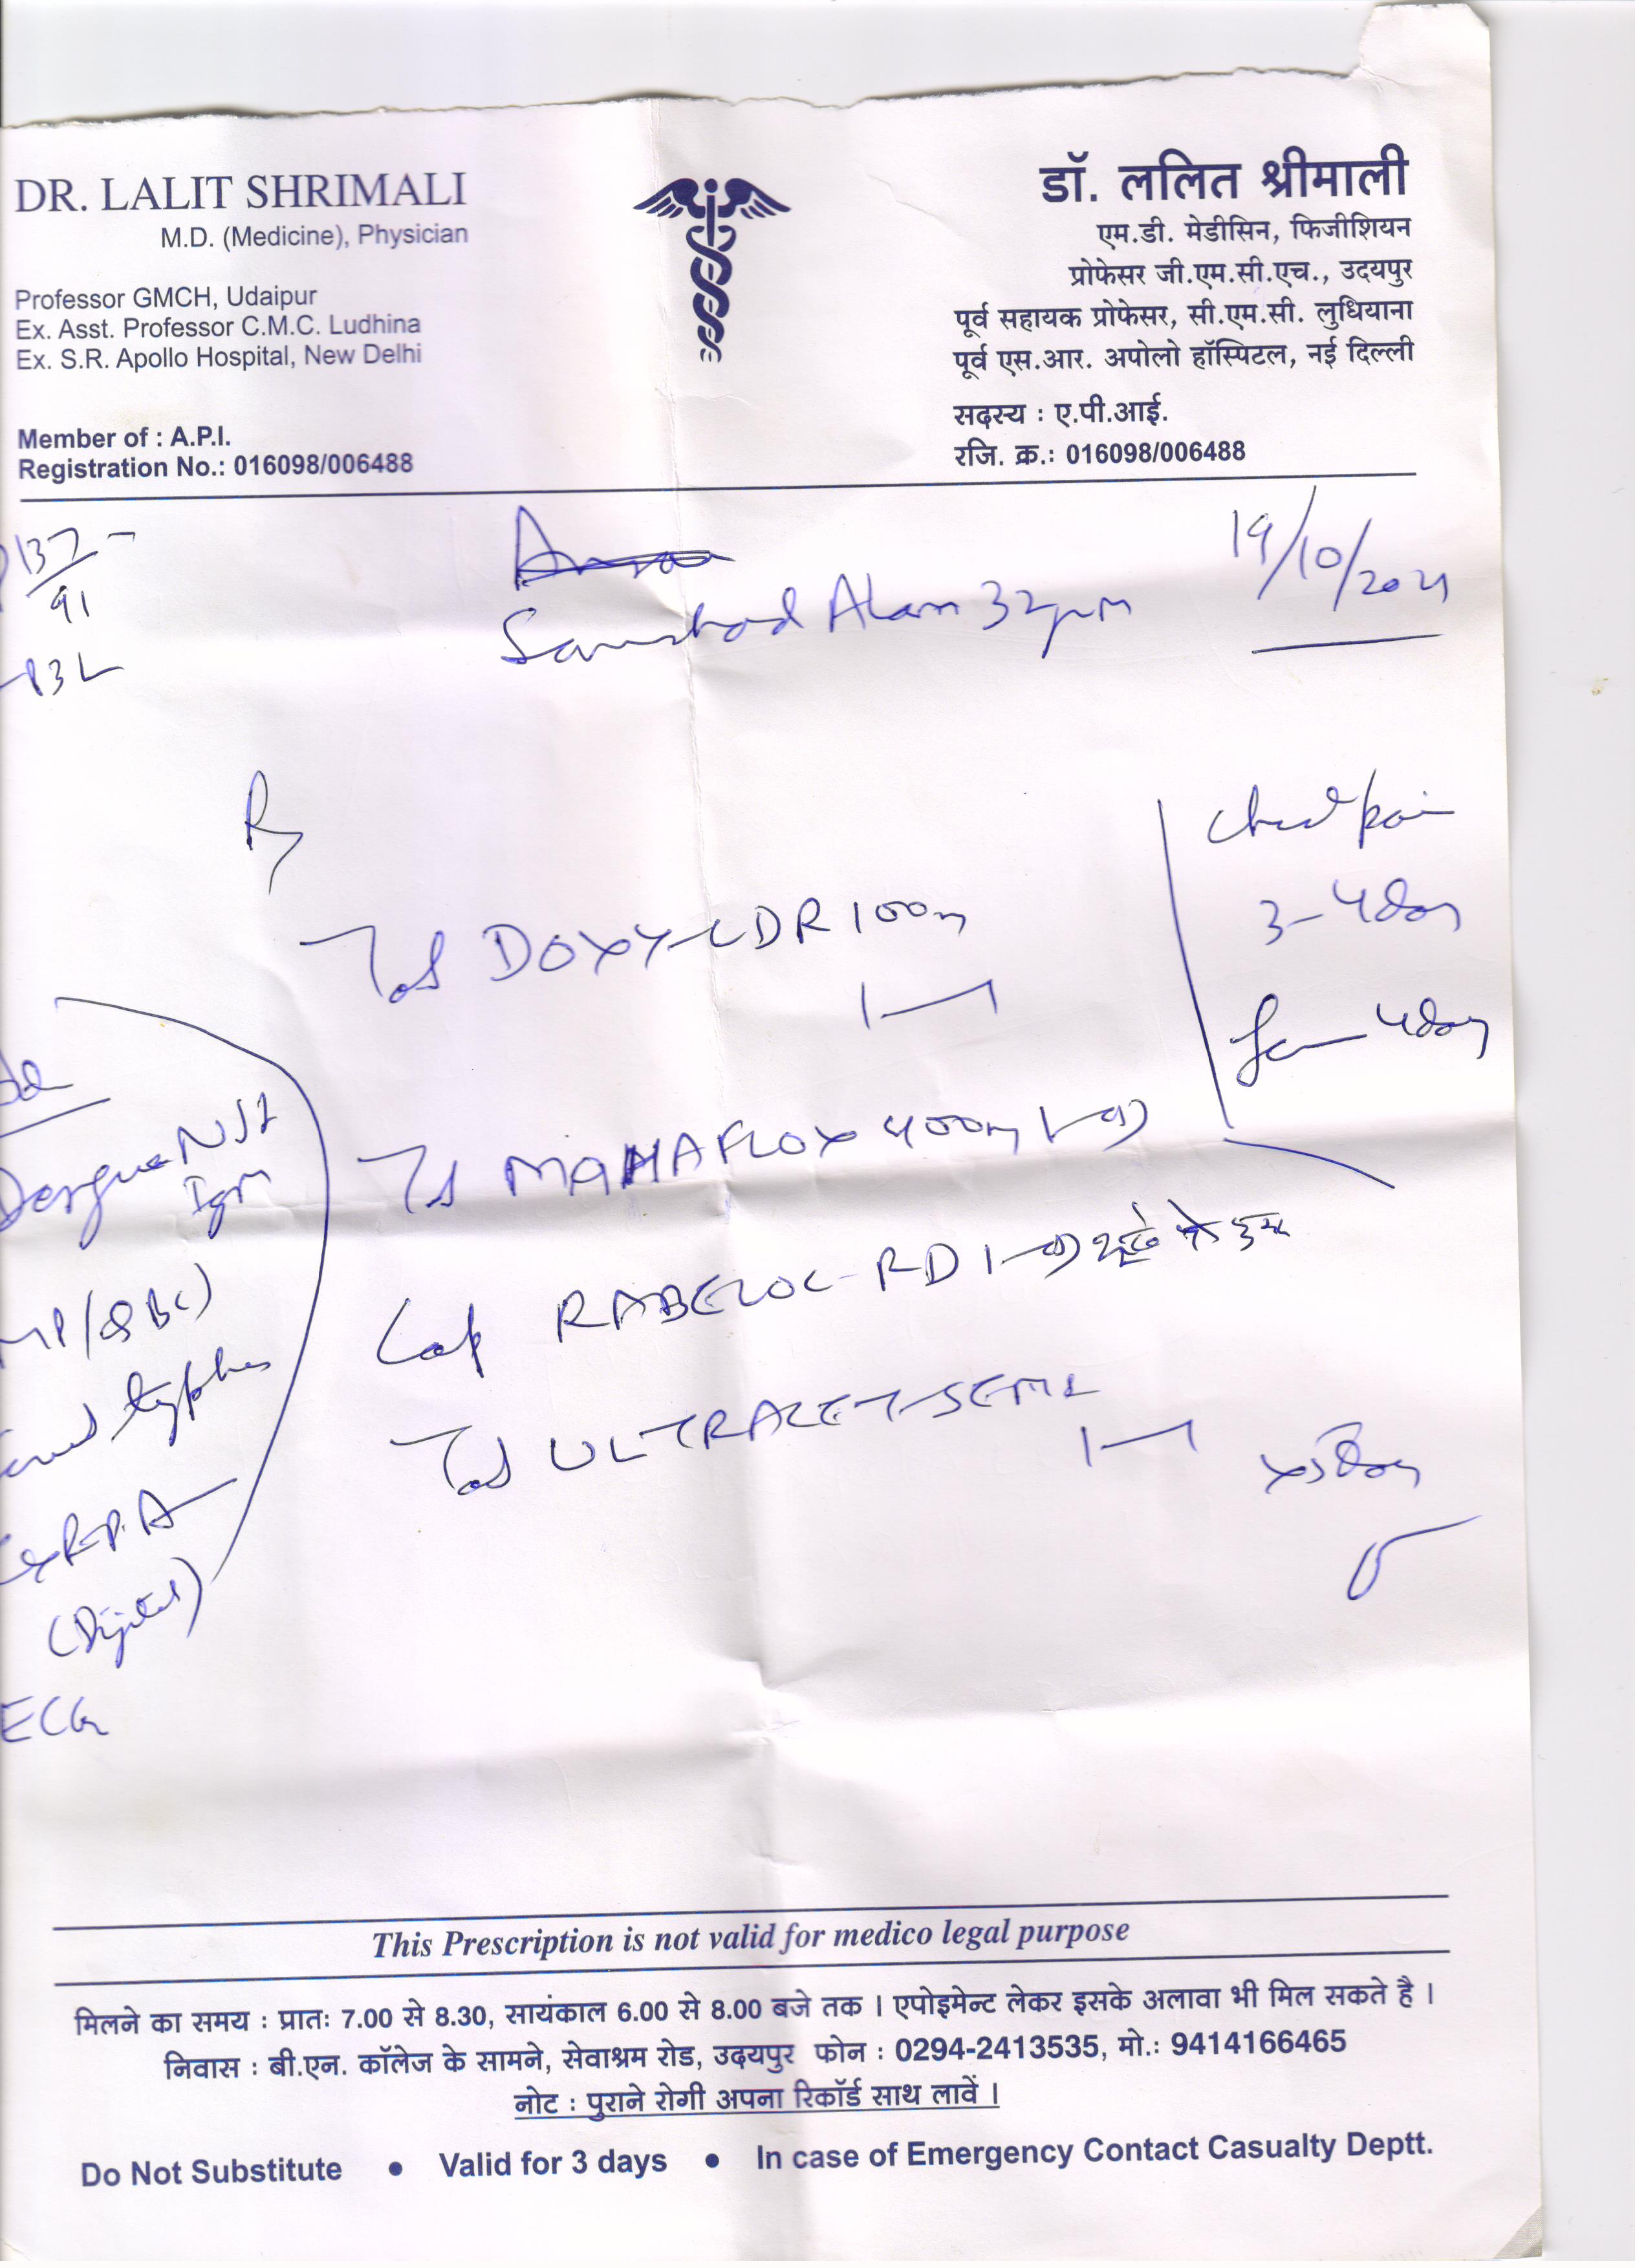 DR. LALIT SHRIMALI
M.D. (Medicine), Physician
Professor GMCH, Udaipur
Ex. Asst. Professor C.M.C. Ludhina
Ex. S.R. Apollo Hospital, New Delhi
Member of : A.P.I.
Registration No.: 016098/006488
डॉ. ललित श्रीमाली
एम.डी. मेडीसिन, फिजीशियन
प्रोफेसर जी.एम.सी.एच., उदयपुर
पूर्व सहायक प्रोफेसर, सी.एम.सी. लुधियाना
पूर्व एस.आर. अपोलो हॉस्पिटल, नई दिल्ली
सदस्य : ए.पी.आई.
रजि. क्र.: 016098/006488
137
91
19/10/2021
Alam 32
Rx
3-4 day
4 day
Tab DOXY-LDR 100
Tab MAHAFLOX 400
Cap RABELOC-RD
Tab ULTRACET-SEMI
Dengue NS1
IgM
MP (QBC)
typhus
(Digital)
ECG
This Prescription is not valid for medico legal purpose
मिलने का समय : प्रातः 7.00 से 8.30, सायंकाल 6.00 से 8.00 बजे तक । एपोइमेन्ट लेकर इसके अलावा भी मिल सकते है ।
निवास : बी.एन. कॉलेज के सामने, सेवाश्रम रोड, उदयपुर फोन : 0294-2413535, मो.: 9414166465
नोट : पुराने रोगी अपना रिकॉर्ड साथ लावें ।
Do Not Substitute • Valid for 3 days • In case of Emergency Contact Casualty Deptt.